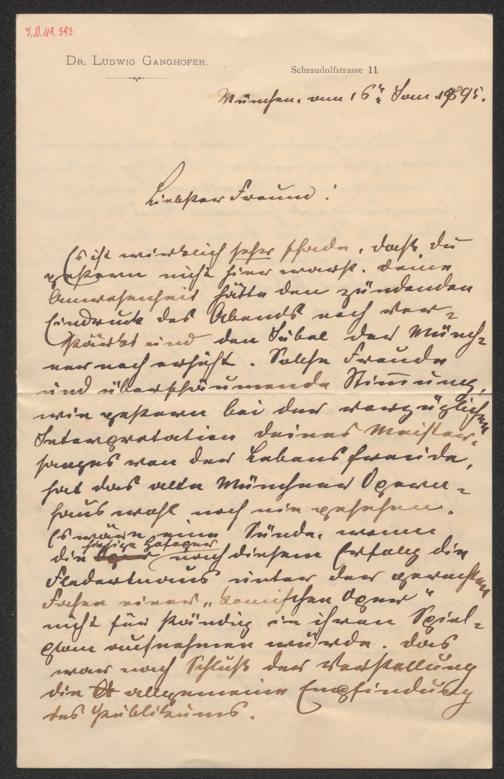 I.N. 119.393
DR. LUDWIG GANGHOFER.
Schraudolfstrasse 11
München, am 16. Jan. 1895.
Liebster Freund!
Es ist wirklich sehr schade, daß du
gestern nicht hier warst. Deine
Anwesenheit hätte den zündenden
Eindruck des Abends noch ver-
stärkt und den Jubel der Münch-
ner noch erhöht. Solche Freude
und überschäumende Stimmung,
wie gestern bei der vorzüglichen
Interpretation deines Meister-
sanges von der Lebensfreude,
hat das alte Münchner Opern-
haus wohl noch nie gesehen.
Es wäre eine Sünde, wenn
hiesige
die nach diesem Erfolg die
Fledermaus unter der
einer „komischen Oper"
nicht für ständig in ihren Spiel-
plan aufnehmen würde. Das
war nach Schluß der Vorstellung
die allgemeine Empfindung
des Publikums.